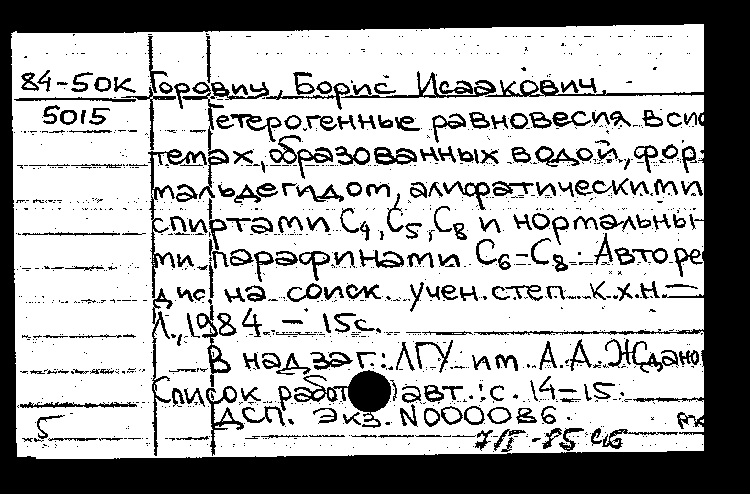 84-50к Горович, Борис Исаакович.
5015 Гетерогенные равновесия в сис
темах, образованных водой, фор-
мальдегидом, алифатическими
спиртами С4, С5, С8 и нормальны-
ми парафинами С6-С8: Авторе
дис. на соиск. учен. степ к.х.н.—
Л., 1984. – 15с.
В надзаг.: ЛГУ им А.А. Ждано
Список работ авт.: с. 14-15.
ДСП. Экз. N000086.
5 7/I -85 сб